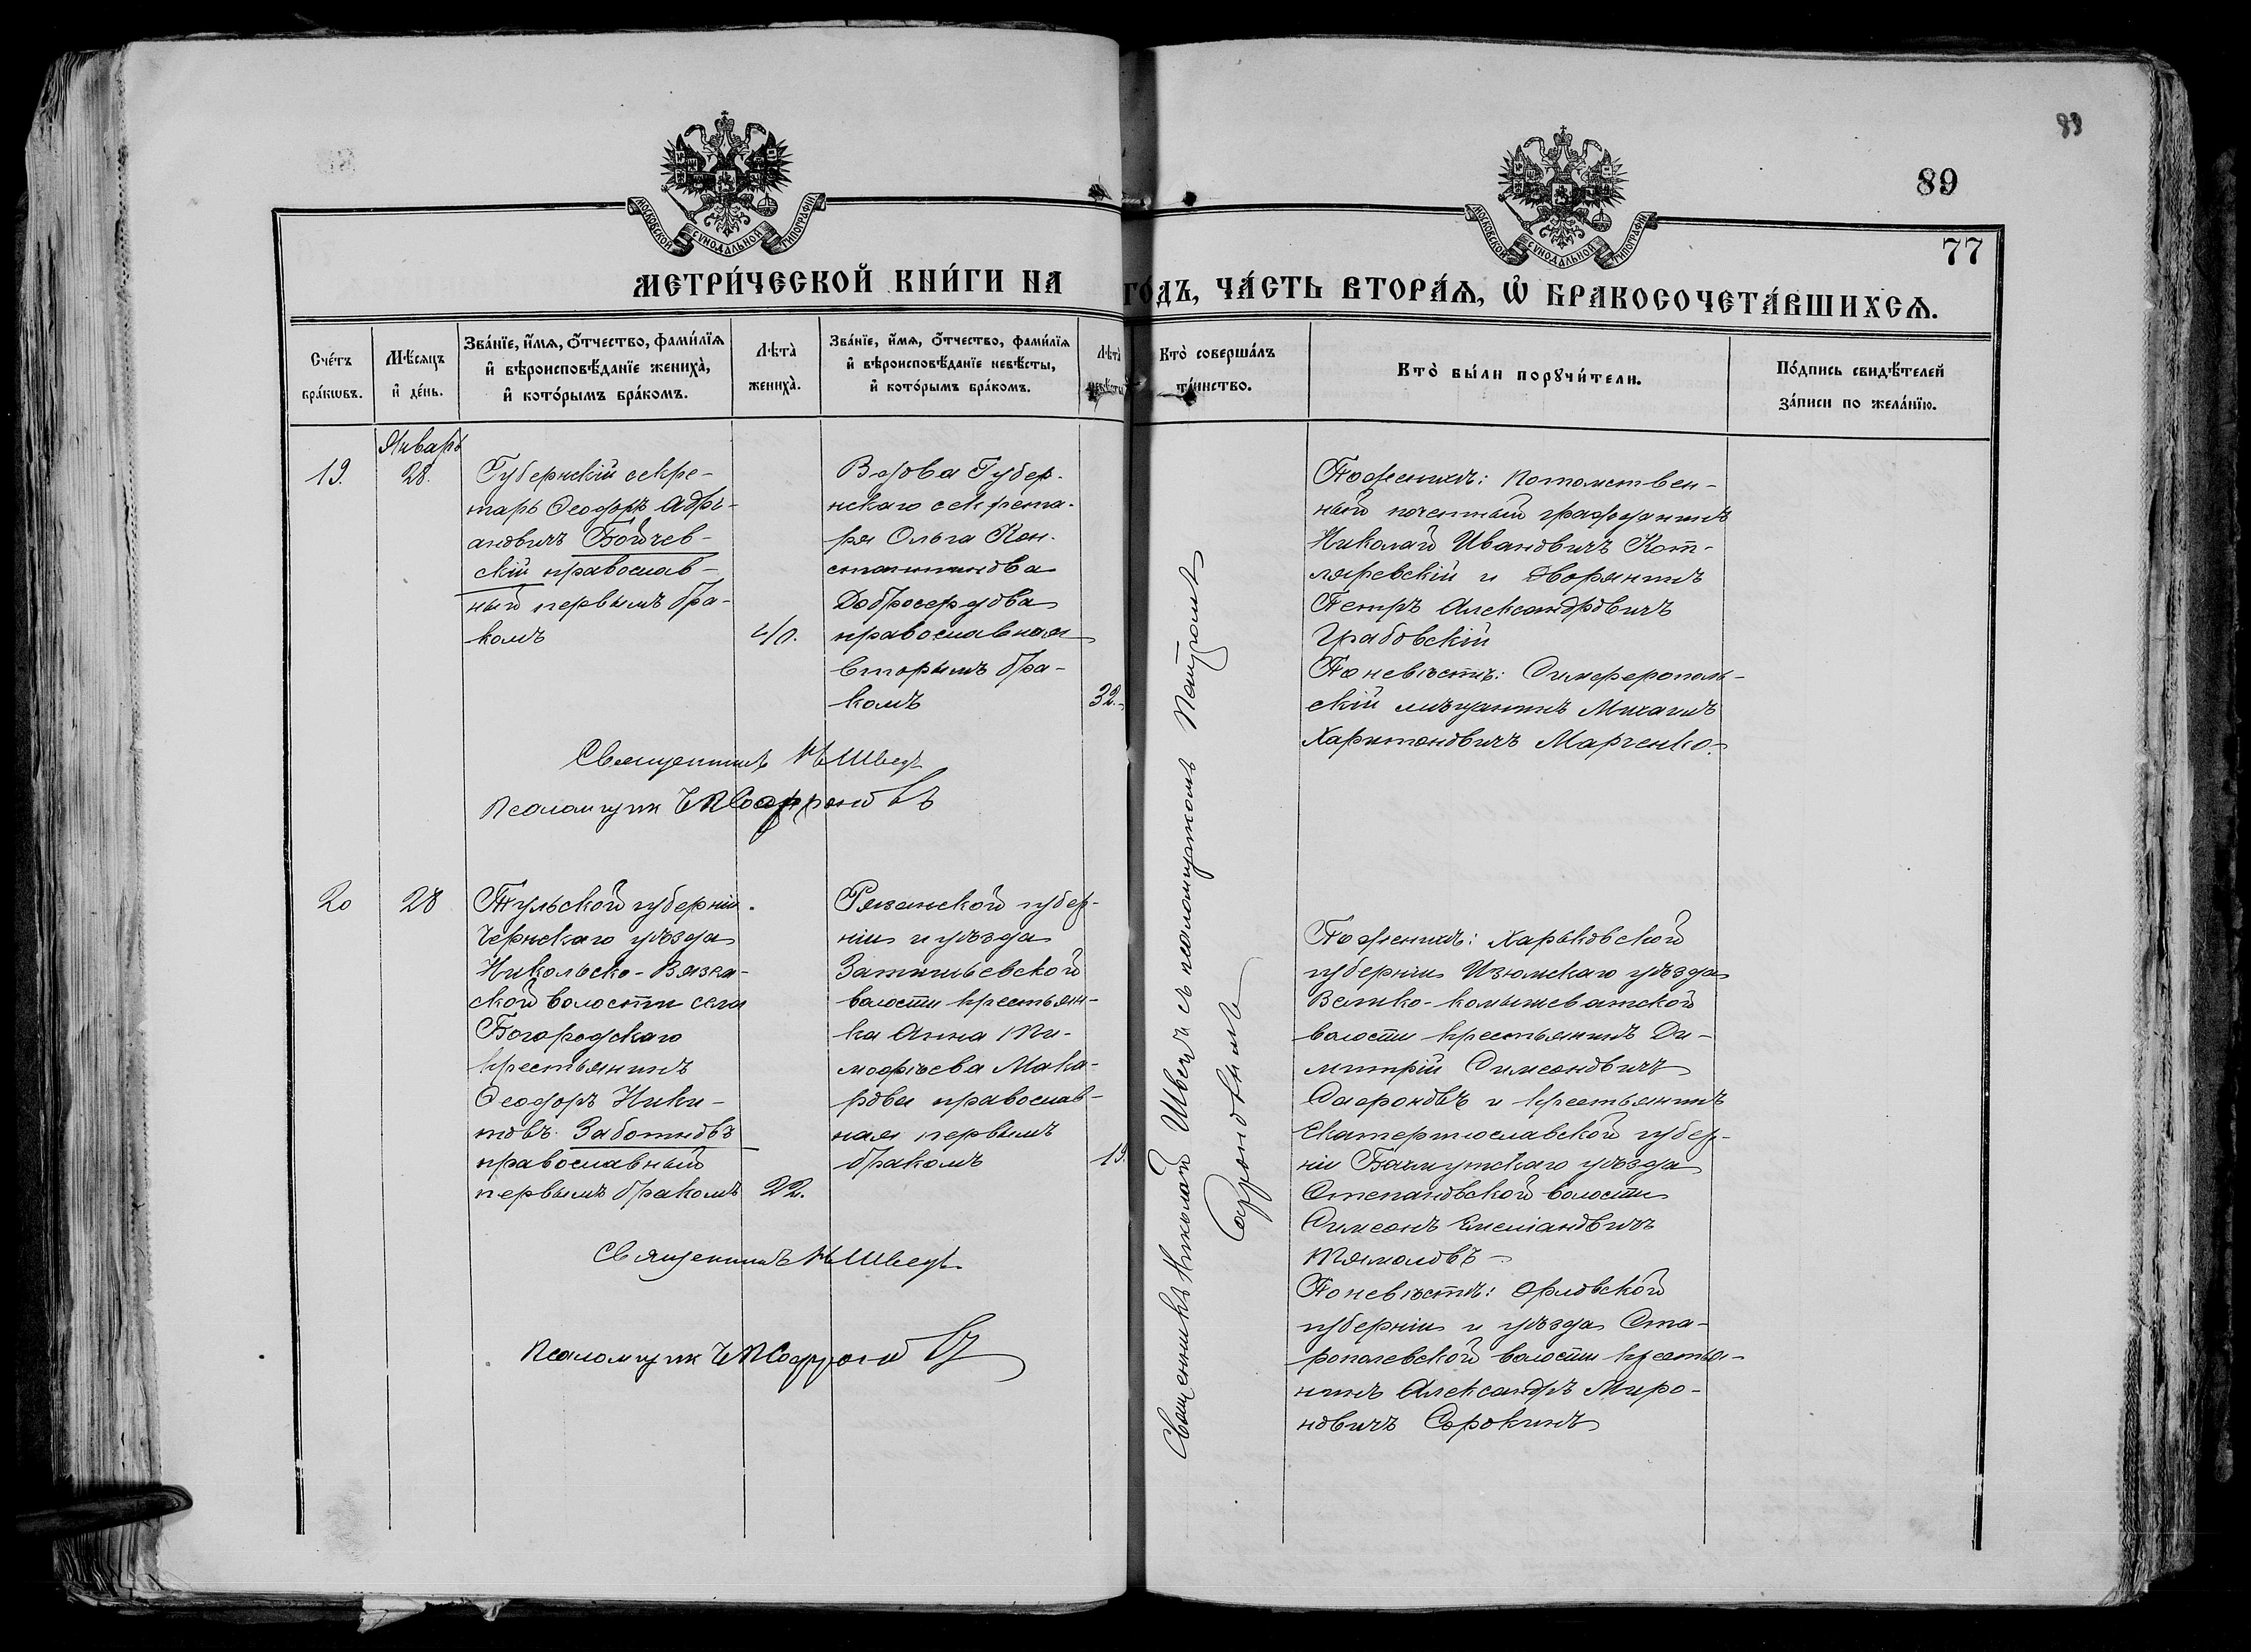 89
89
77
МОСКОВСКОЙ СУНОДАЛЬНОЙ ТИПОГРАФІИ
МОСКОВСКОЙ СУНОДАЛЬНОЙ ТИПОГРАФІИ
МЕТРИ́ЧЕСКОЙ КНИ́ГИ НА ГО́ДЪ, ЧА́СТЬ ВТОРА́Ѧ, Ѡ҆ БРАКОСОЧЕТА́ВШИХСѦ.
Сче́тъ
бра́кѡвъ.
Мѣ́сяцъ
и҆ де́нь.
Зва́нїе, и҆́мѧ, ѻ҆́тчество, фами́лїѧ
и҆ вѣроисповѣ́данїе жениха̀,
и҆ кото́рымъ бра́комъ.
Лѣта̀
жениха̀.
Зва́нїе, и҆́мѧ, ѻ҆́тчество, фами́лїѧ
и҆ вѣроисповѣ́данїе невѣ́сты,
и҆ кото́рымъ бра́комъ.
Лѣта̀
невѣ́сты
Кто̀ соверша́лъ
та́инство.
Кто̀ бы́ли порꙋчи́тели.
По́дпись свидѣ́телей
за́писи по жела́нїю.
Январь
19.
28.
Губернскій секре-
тарь Ѳеодоръ Адрі-
ановичъ Бойчев-
скій православ-
ный первымъ бра-
комъ
40.
Вдова Губер-
нскаго секрета-
ря Ольга Кон-
стантинова
Добросердова
православная
вторымъ бра-
комъ
32.
По женихѣ: потомствен-
ный почетный гражданинъ
Николай Ивановичъ Кот-
ляревскій и дворянинъ
Петръ Александровичъ
Грабовскій
По невѣстѣ: Симферополь-
скій мѣщанинъ Михаилъ
Харитоновичъ Марченко.
Священникъ Н Швецъ
Псаломщик П Софроновъ
20
28
Тульской губерніи
Чернскаго уѣзда
Никольско-Вязем-
ской волости села
Богородскаго
крестьянинъ
Ѳеодоръ Ники-
товъ Заботновъ
православный
первымъ бракомъ
22.
Рязанской губер-
ніи и уѣзда
волости крестьян-
ка Анна Ти-
моѳѣева Мака-
рова православ-
ная первымъ
бракомъ
19.
Священникъ Николай Швецъ съ псаломщикомъ
Софроновымъ
По женихѣ: Харьковской
губерніи Изюмскаго уѣзда
Велико-комышеватской
волости крестьянинъ Ди-
митрій Симеоновичъ
Сафроновъ и крестьянинъ
Екатеринославской губер-
ніи Бахмутскаго уѣзда
Степановской волости
Симеонъ Емеліановичъ
По невѣстѣ: Орловской
губерніи и уѣзда Ста-
волости крестья-
нинъ Александръ Миро-
новичъ Сорокинъ
Священникъ Н Швецъ
Псаломщик П Софроновъ